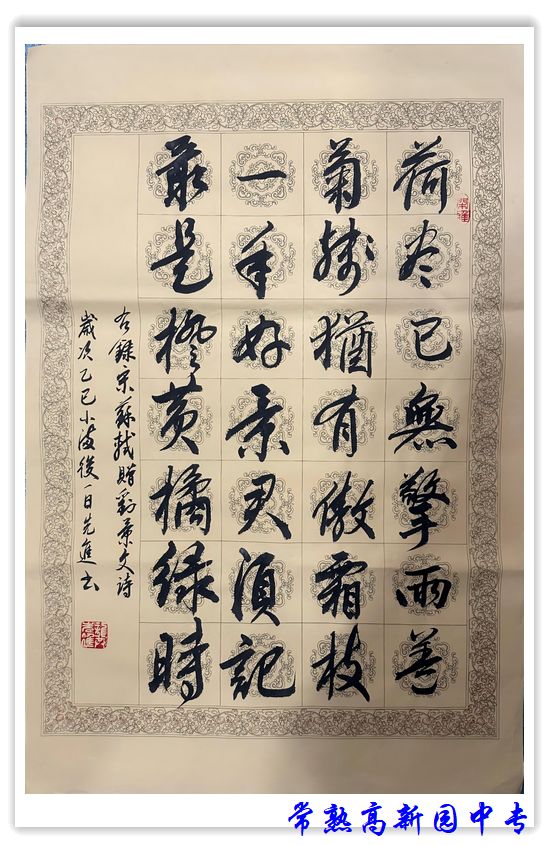 荷尽已無擎雨盖
菊残猶有傲霜枝
一年好景君須記
最是橙黄橘緑時
右錄宋蘇軾贈劉景文詩
歲次乙巳小滿後一日先進书
常熟高新园中专